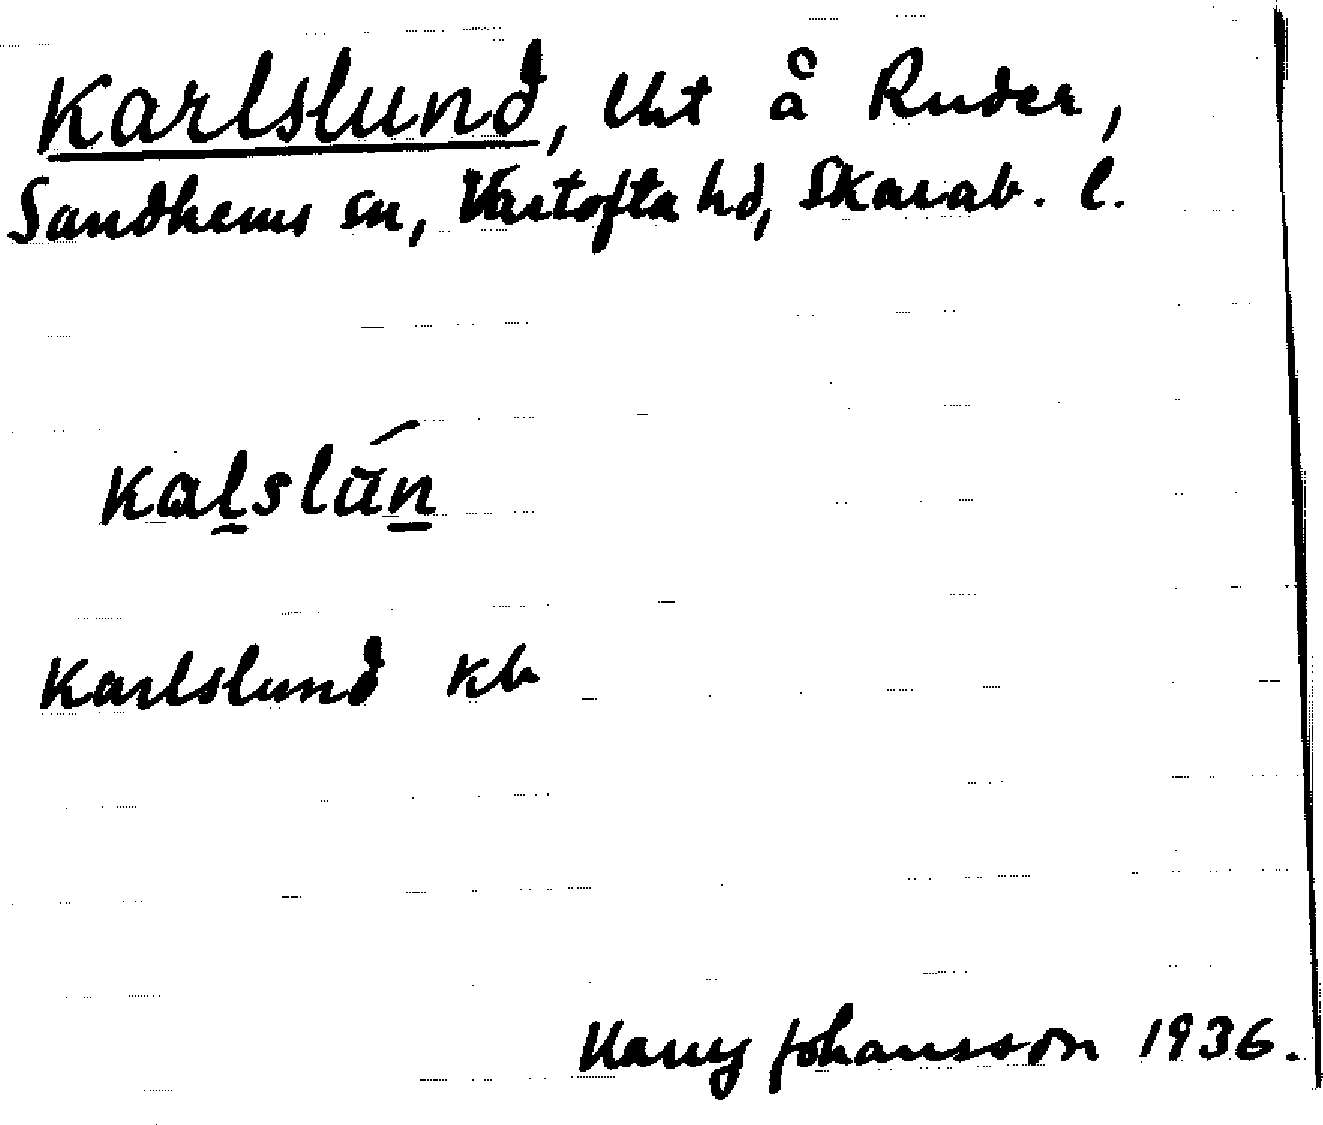 Karlslund, lht å Ruder,
Sandhems sn, Vartofta hd, Skarab. l.
kalslun
Karlslund kb
Harry Johansson 1936.